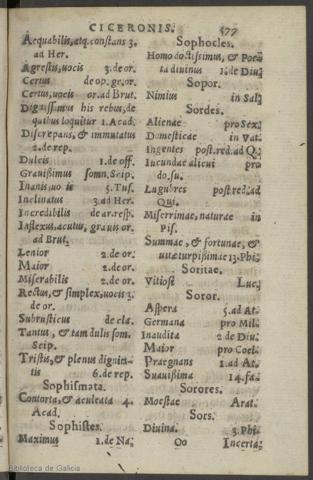 CICERONIS.
577
Aequabilis, atq. constans 3.
ad Her.
Agrestis, uocis 3. de or.
Certus de op. ge. or.
Certus, uocis or. ad Brut.
Dignissimus his rebus, de
quibus loquitur 1. Acad.
Discrepans, & immutatus
2. de rep.
Dulcis 1. de off.
Grauissimus somn. Scip.
Inanis, uo is 5. Tus.
Inclinatus 3. ad Her.
Incredibilis de ar. resp.
Inflexus, acutus, grauis or.
ad Brut.
Lenior 2. de or.
Maior 2. de or.
Miserabilis 2. de or.
Rectus, & simplex, uocis 3.
de or.
Subrusticus de cla.
Tantus, & tam dulis som.
Scip.
Tristis, & plenus dignita-
tis 6. de rep.
Sophismata.
Contorta, & aculeata 4.
Acad.
Sophistes.
Maximus 1. de Na;
Sophocles.
Homo doctissimus, & Poe-
ta diuinus 1. de Diu;
Sopor.
Nimius in Sal;
Sordes.
Alienae pro Sex;
Domesticae in Vat.
Ingentes post. red. ad Q;
Iucundae alicui pro
do. su.
Lugubres post red. ad
Qui.
Miserrimae, naturae in
Pis.
Summae, & fortunae, &
uitae turpissimae 13. Phi.
Soritae.
Vitiose Luc;
Soror.
Aspera 5. ad At.
Germana pro Mil.
Inaudita 2. de Diu;
Maior pro Coel.
Praegnans 1. ad At.
Suauissima 14. fa;
Sorores.
Moestae Arat.
Sors.
Diuina. 3. Phi.
Oo Incerta;
Biblioteca de Galicia